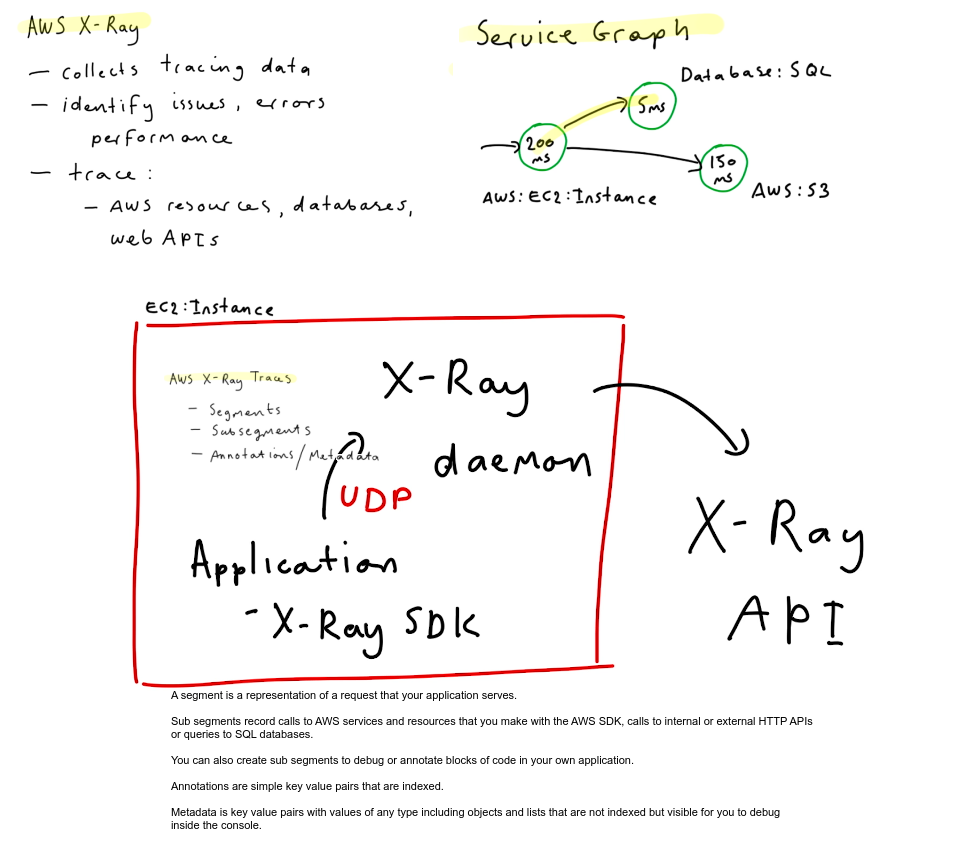 AWS X-Ray
- collects tracing data
- identify issues, errors
performance
- trace:
- AWS resources, databases,
web APIs
Service Graph
Database: SQL
5ms
200
ms
150
ms
AWS: EC2: Instance
AWS: S3
EC2: Instance
AWS X-Ray Traces
- Segments
- Subsegments
- Annotations/Metadata
X-Ray
daemon
UDP
Application
- X-Ray SDK
X-Ray
API
A segment is a representation of a request that your application serves.
Sub segments record calls to AWS services and resources that you make with the AWS SDK, calls to internal or external HTTP APIs
or queries to SQL databases.
You can also create sub segments to debug or annotate blocks of code in your own application.
Annotations are simple key value pairs that are indexed.
Metadata is key value pairs with values of any type including objects and lists that are not indexed but visible for you to debug
inside the console.